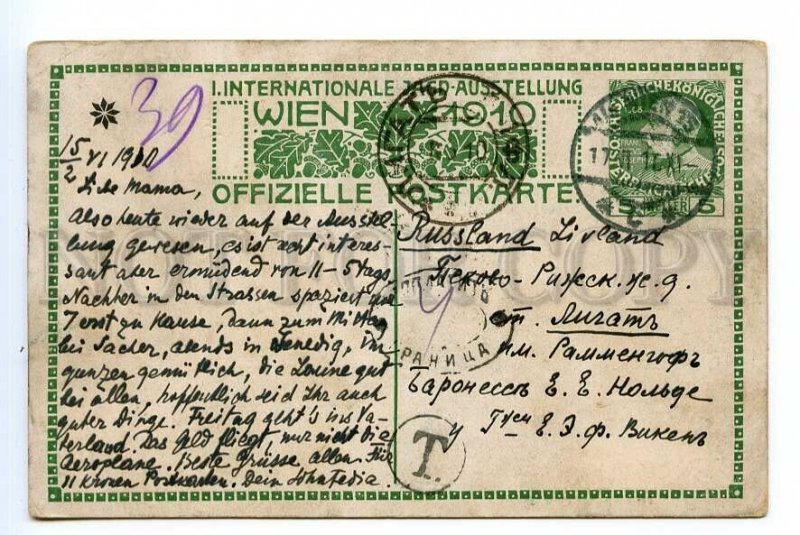 39
I. INTERNATIONALE JAGD-AUSSTELLUNG
WIEN 1910
OFFIZIELLE POSTKARTE
15/2 VI 1910
Liebe Mama,
Also heute wieder auf der Ausstel-
lung gewesen, es ist recht interes-
sant aber ermüdend von 11-5 tags
Nachher in den Strassen spaziert
7 erst zu Hause, dann zum
bei Sacher, abends in Venedig, im
gemütlich, die Laune gut
bei allen, hoffentlich seid Ihr auch
guter Dinge. Freitag geht's ins Va-
terland. Das Geld fliegt, nur nicht die
Aeroplane. Beste Grüsse allen. Für
11 Kronen Postkarten. Dein Sohn Fedia.
Russland Livland
Псково-Рижск. ж. д.
ст. Лигатъ
им. Рамменгофъ
Баронессѣ Е. Е. Нольде
у Е. Э. ф. Викенъ
ДОПЛАТИТЬ
ГРАНИЦА
T.
5 HELLER 5
NOT FOR COPY